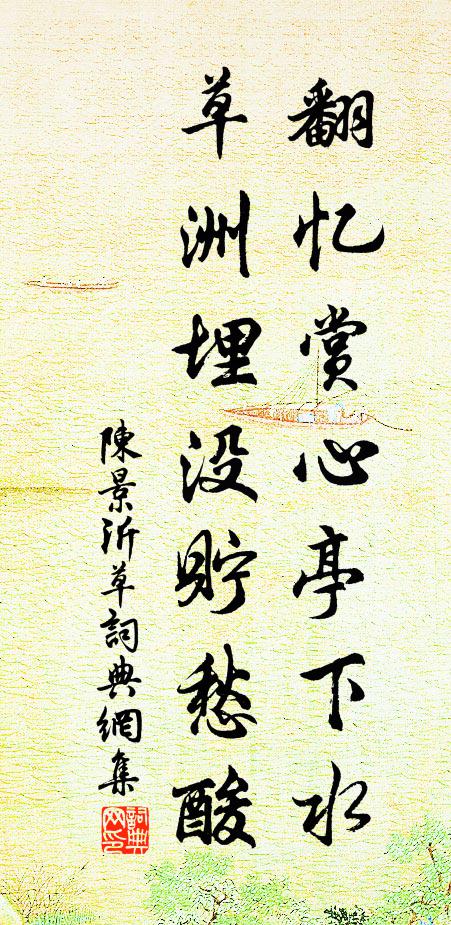 翻忆赏心亭下水
草洲埋没貯愁酸
陳景沂草詞典網集
詞典网印